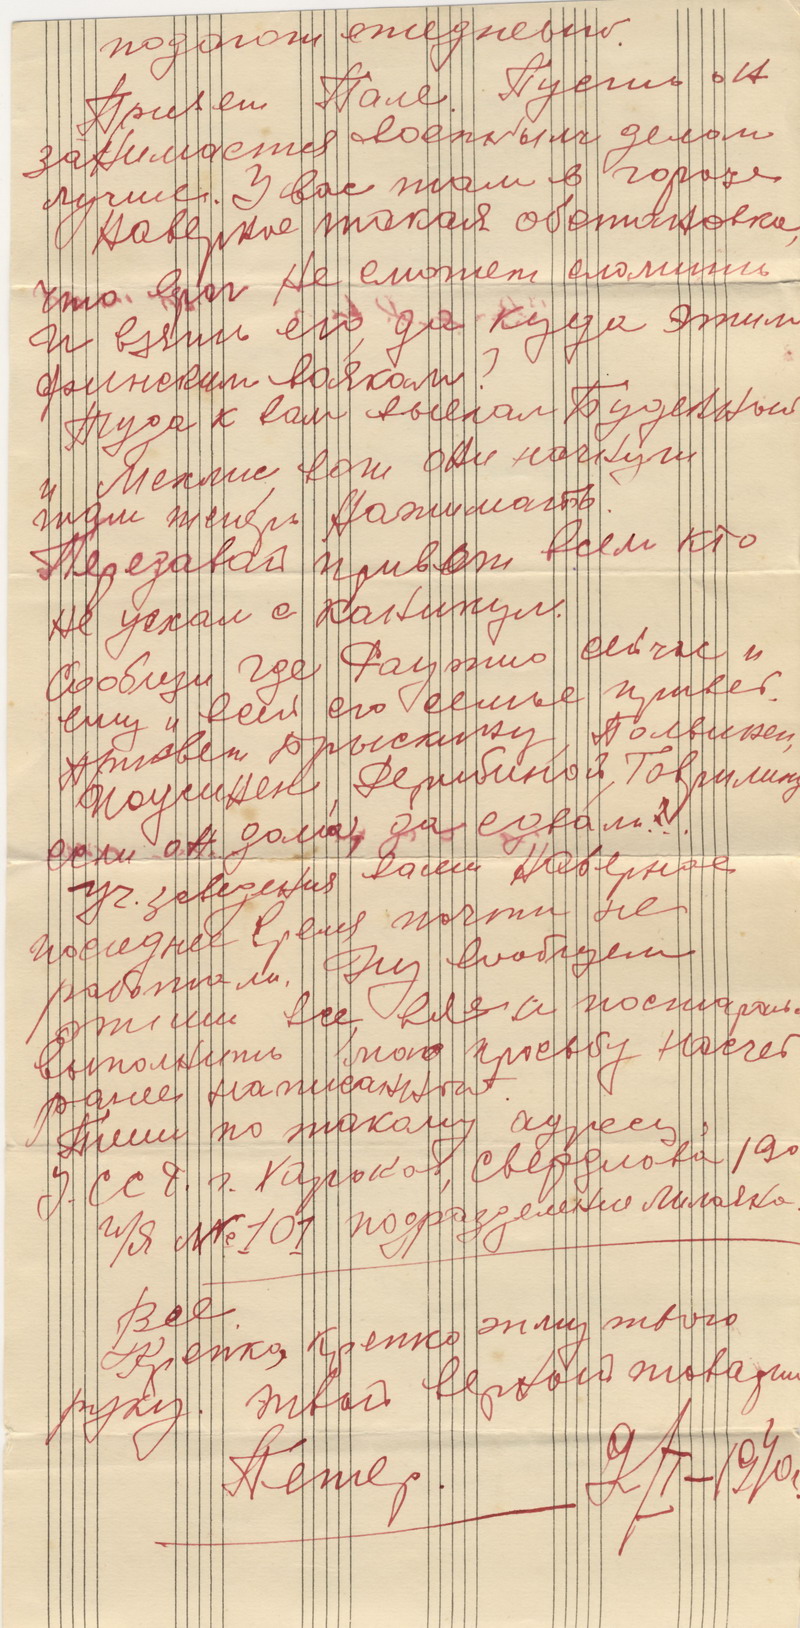 подогот ежедневно.
Привет Пале. Пусть он
занимается военным делом
лучше. У вас там в городе
наверное такая обстановка,
что враг не сможет сломить
и взять его, да куда этим
финским воякам?
Туда к вам выехал Буденный
и Мехлис, вот они начнут
там теперь нажимать.
Передавай привет всем кто
не уехал с каникул.
Сообщи где Раутио сейчас и
ему и всей его семье привет.
Привет Брыскину,
Поусинен Дерябиной, Гаврилину
если он дома, да
Уч. заведения ваши наверное
последнее время почти не
работали. Ну сообщи
все и постарайся
выполнить мою просьбу насчет
ранее написанного.
Пиши по такому адресу:
У.ССР. г. Харьков, Свердлова 190
п/я № 101 подразделение
Все.
Крепко, крепко жму твою
руку. Твой верный товарищ
Петер. 1940г.